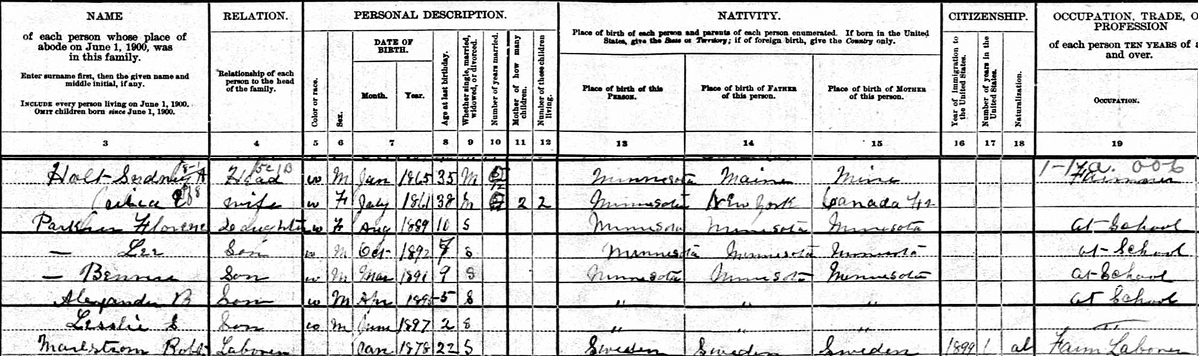 NAME
of each person whose place of
abode on June 1, 1900, was
in this family.
Enter surname first, then the given name and
middle initial, if any.
INCLUDE every person living on June 1, 1900.
OMIT children born since June 1, 1900.
RELATION.
Relationship of each
person to the head
of the family.
PERSONAL DESCRIPTION.
Color or race.
Sex.
DATE OF
BIRTH.
Month.
Year.
Age at last birthday.
Whether single, married,
widowed, or divorced.
Number of years married.
Mother of how many
children.
Number of these children
living.
NATIVITY.
Place of birth of each person and parents of each person enumerated. If born in the United
States, give the State or Territory; if of foreign birth, give the Country only.
Place of birth of this
PERSON.
Place of birth of FATHER
of this person.
Place of birth of MOTHER
of this person.
CITIZENSHIP.
Year of immigration to
the United States.
Number of years in the
United States.
Naturalization.
OCCUPATION, TRADE, O
PROFESSION
of each person TEN YEARS of a
and over.
OCCUPATION.
3 4 5 6 7 8 9 10 11 12 13 14 15 16 17 18 19
Holt Sidney A Head w M Jan 1865 35 M Minnesota Maine Farmer
wife w F July 1861 38 M 2 2 Minnesota New York Canada
Florence Daughter w F Aug 1889 10 S Minnesota Minnesota Minnesota At School
— Lee Son w M Oct 1892 7 S Minnesota Minnesota Minnesota at School
— Son w M Mar 1891 9 S Minnesota Minnesota Minnesota At School
Alexander B Son w M Apr 1895 5 S " " " At School
Lesslie Son w M June 1897 2 S " " "
Robt Laborer Jan 1878 22 S Sweden Sweden Sweden 1899 1 al Farm Laborer